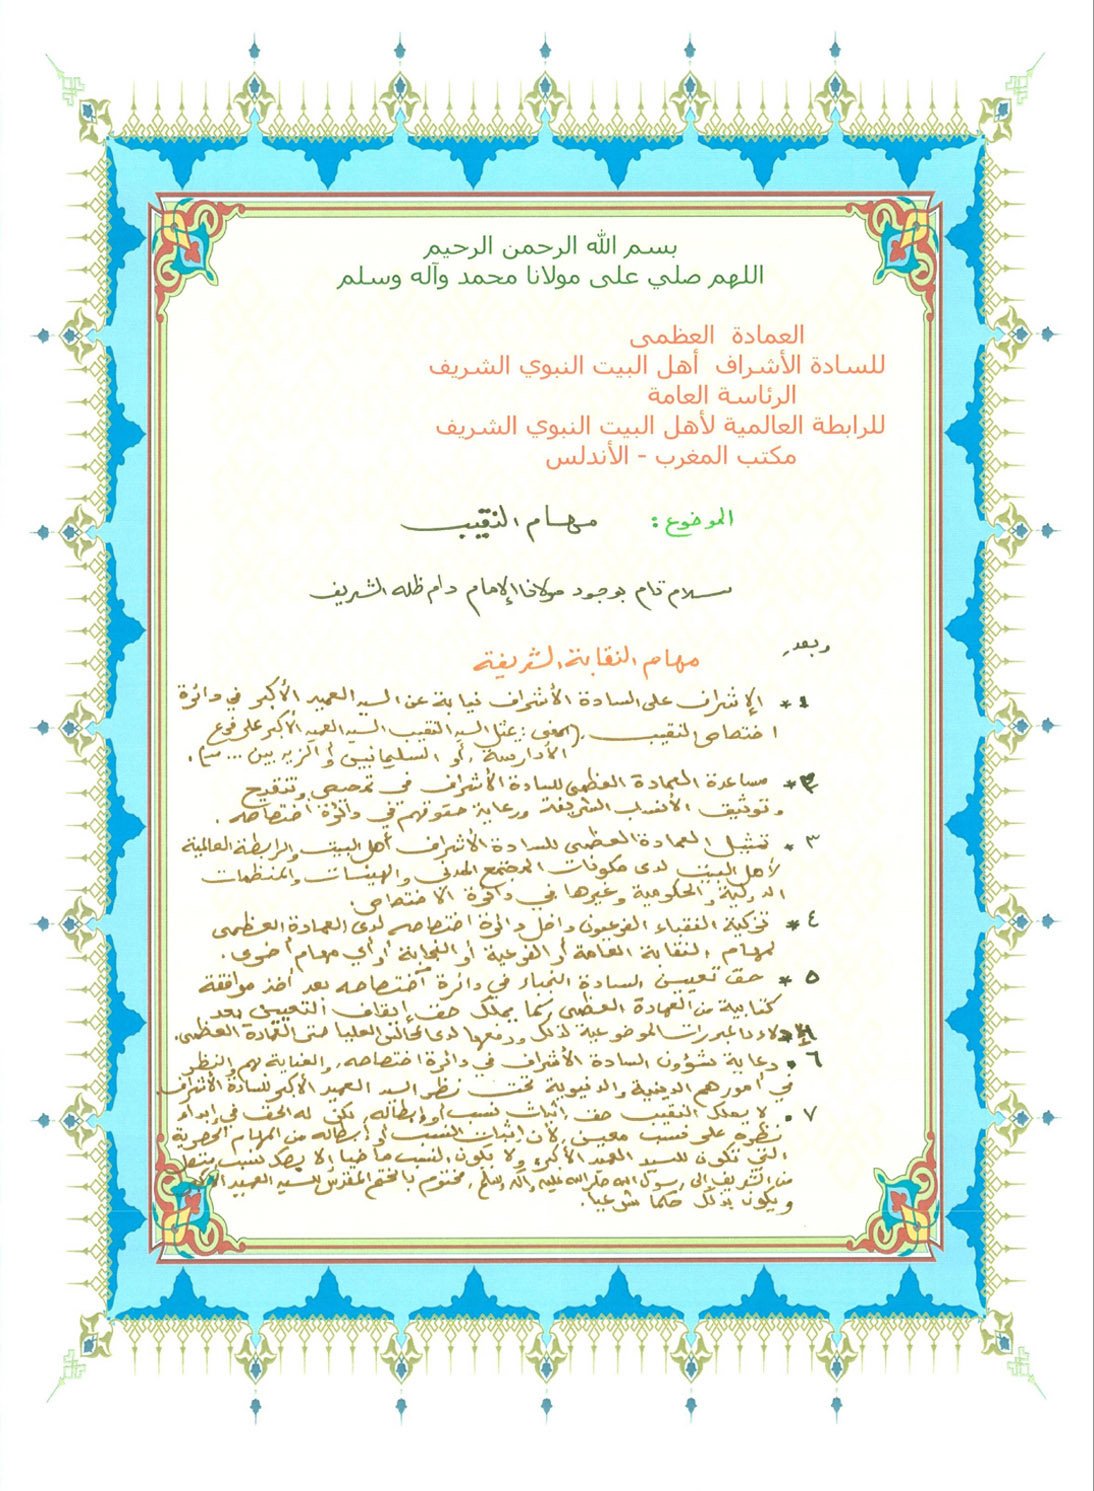 بسم الله الرحمن الرحيم
اللهم صلي على مولانا محمد وآله وسلم
العمادة العظمى
للسادة الأشراف أهل البيت النبوي الشريف
الرئاسة العامة
للرابطة العالمية لأهل البيت النبوي الشريف
مكتب المغرب - الأندلس
الموضوع : مهام النقيب
سلام تام بوجود مولانا الإمام دام ظله الشريف
وبعد،
مهام النقابة الشريفة
١* الإشراف على السادة الأشراف نيابة عن السيد العميد الأكبر في دائرة
اختصاص النقيب . (بمعنى : يمثل السيد النقيب السيد العميد الأكبر على فروع
الأدارسة ، أو السليمانيين أو الزيديين ...
* مساعدة العمادة العظمى للسادة الأشراف في تمحيص وتنقيح
وتوثيق الأنساب الشريفة ورعاية حقوقهم في دائرة اختصاصه .
٣ * تمثيل العمادة العظمى للسادة الأشراف أهل البيت والرابطة العالمية
لأهل البيت لدى مكونات المجتمع المدني والهيئات والمنظمات
الدولية والحكومية وغيرها في دائرة الاختصاص .
٤ * تزكية النقباء الفرعيون داخل دائرة اختصاصه لدى العمادة العظمى
لمهام النقابة العامة أو الفرعية أو النجابة أو أي مهام أخرى .
٥ * حق تعيين السادة النجباء في دائرة اختصاصه بعد أخذ موافقة
كتابية من العمادة العظمى كما يملك حق إيقاف التعيين بعد
المبررات الموضوعية لذلك ورفعها لدى العليا حتى العمادة العظمى.
٦ . رعاية شؤون السادة الأشراف في دائرة اختصاصه، والعناية بهم والنظر
في أمورهم الدينية والدنيوية تحت نظر السيد العميد الأكبر للسادة الأشراف.
٧ . لا يملك النقيب حق إثبات نسب أو إبطاله، لكن له الحق في إبداء
نظره على نسب معين، لأن إثبات النسب أو إبطاله من المهام الحصرية
التي تكون للسيد العميد الأكبر، ولا يكون النسب ماضيا إلا بصك نسب متصل
من الشريف إلى رسول الله صلى الله عليه وآله وسلم، مختوم بالختم المقدس للسيد العميد الأكبر
ويكون بذلك حكما شرعيا .